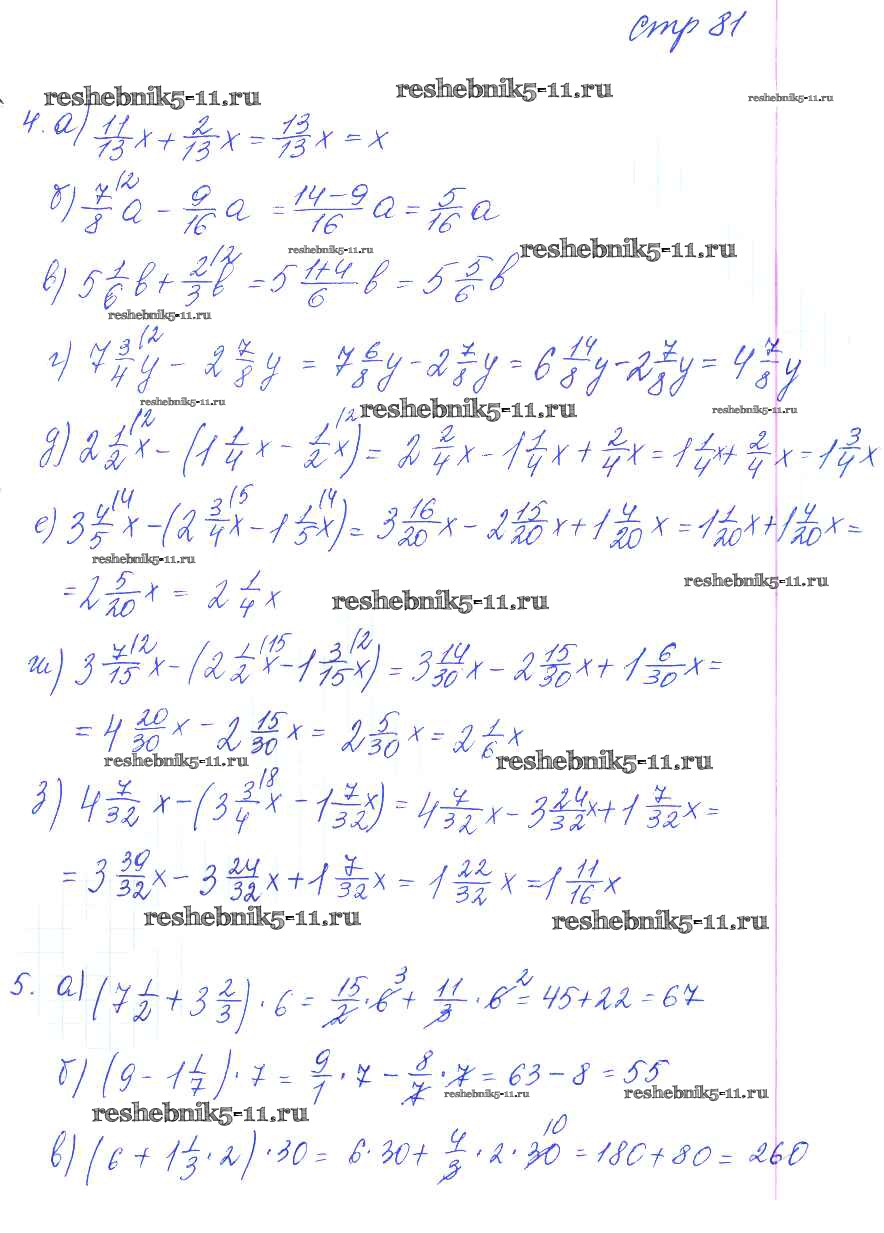 стр 81
reshebnik5-11.ru reshebnik5-11.ru reshebnik5-11.ru
4. а) 11/13 x + 2/13 x = 13/13 x = x
б) 7/8 |2 a − 9/16 a = (14−9)/16 a = 5/16 a
reshebnik5-11.ru reshebnik5-11.ru
в) 5 1/6 b + 2/3 |2 b = 5 (1+4)/6 b = 5 5/6 b
reshebnik5-11.ru
г) 7 3/4 |2 y − 2 7/8 y = 7 6/8 y − 2 7/8 y = 6 14/8 y − 2 7/8 y = 4 7/8 y
reshebnik5-11.ru reshebnik5-11.ru reshebnik5-11.ru
д) 2 1/2 |2 x − (1 1/4 x − 1/2 |2 x) = 2 2/4 x − 1 1/4 x + 2/4 x = 1 1/4 x + 2/4 x = 1 3/4 x
е) 3 4/5 |4 x − (2 3/4 |5 x − 1 1/5 |4 x) = 3 16/20 x − 2 15/20 x + 1 4/20 x = 1 1/20 x + 1 4/20 x =
reshebnik5-11.ru reshebnik5-11.ru
= 2 5/20 x = 2 1/4 x
reshebnik5-11.ru
ж) 3 7/15 |2 x − (2 1/2 |15 x − 1 3/15 |2 x) = 3 14/30 x − 2 15/30 x + 1 6/30 x =
= 4 20/30 x − 2 15/30 x = 2 5/30 x = 2 1/6 x
reshebnik5-11.ru reshebnik5-11.ru
з) 4 7/32 x − (3 3/4 |8 x − 1 7/32 x) = 4 7/32 x − 3 24/32 x + 1 7/32 x =
= 3 39/32 x − 3 24/32 x + 1 7/32 x = 1 22/32 x = 1 11/16 x
reshebnik5-11.ru reshebnik5-11.ru
5. а) (7 1/2 + 3 2/3) · 6 = 15/2 · 6 3 + 11/3 · 6 2 = 45 + 22 = 67
б) (9 − 1 1/7) · 7 = 9/1 · 7 − 8/7 · 7 = 63 − 8 = 55
reshebnik5-11.ru reshebnik5-11.ru reshebnik5-11.ru
в) (6 + 1 1/3 · 2) · 30 = 6 · 30 + 4/3 · 2 · 30 10 = 180 + 80 = 260